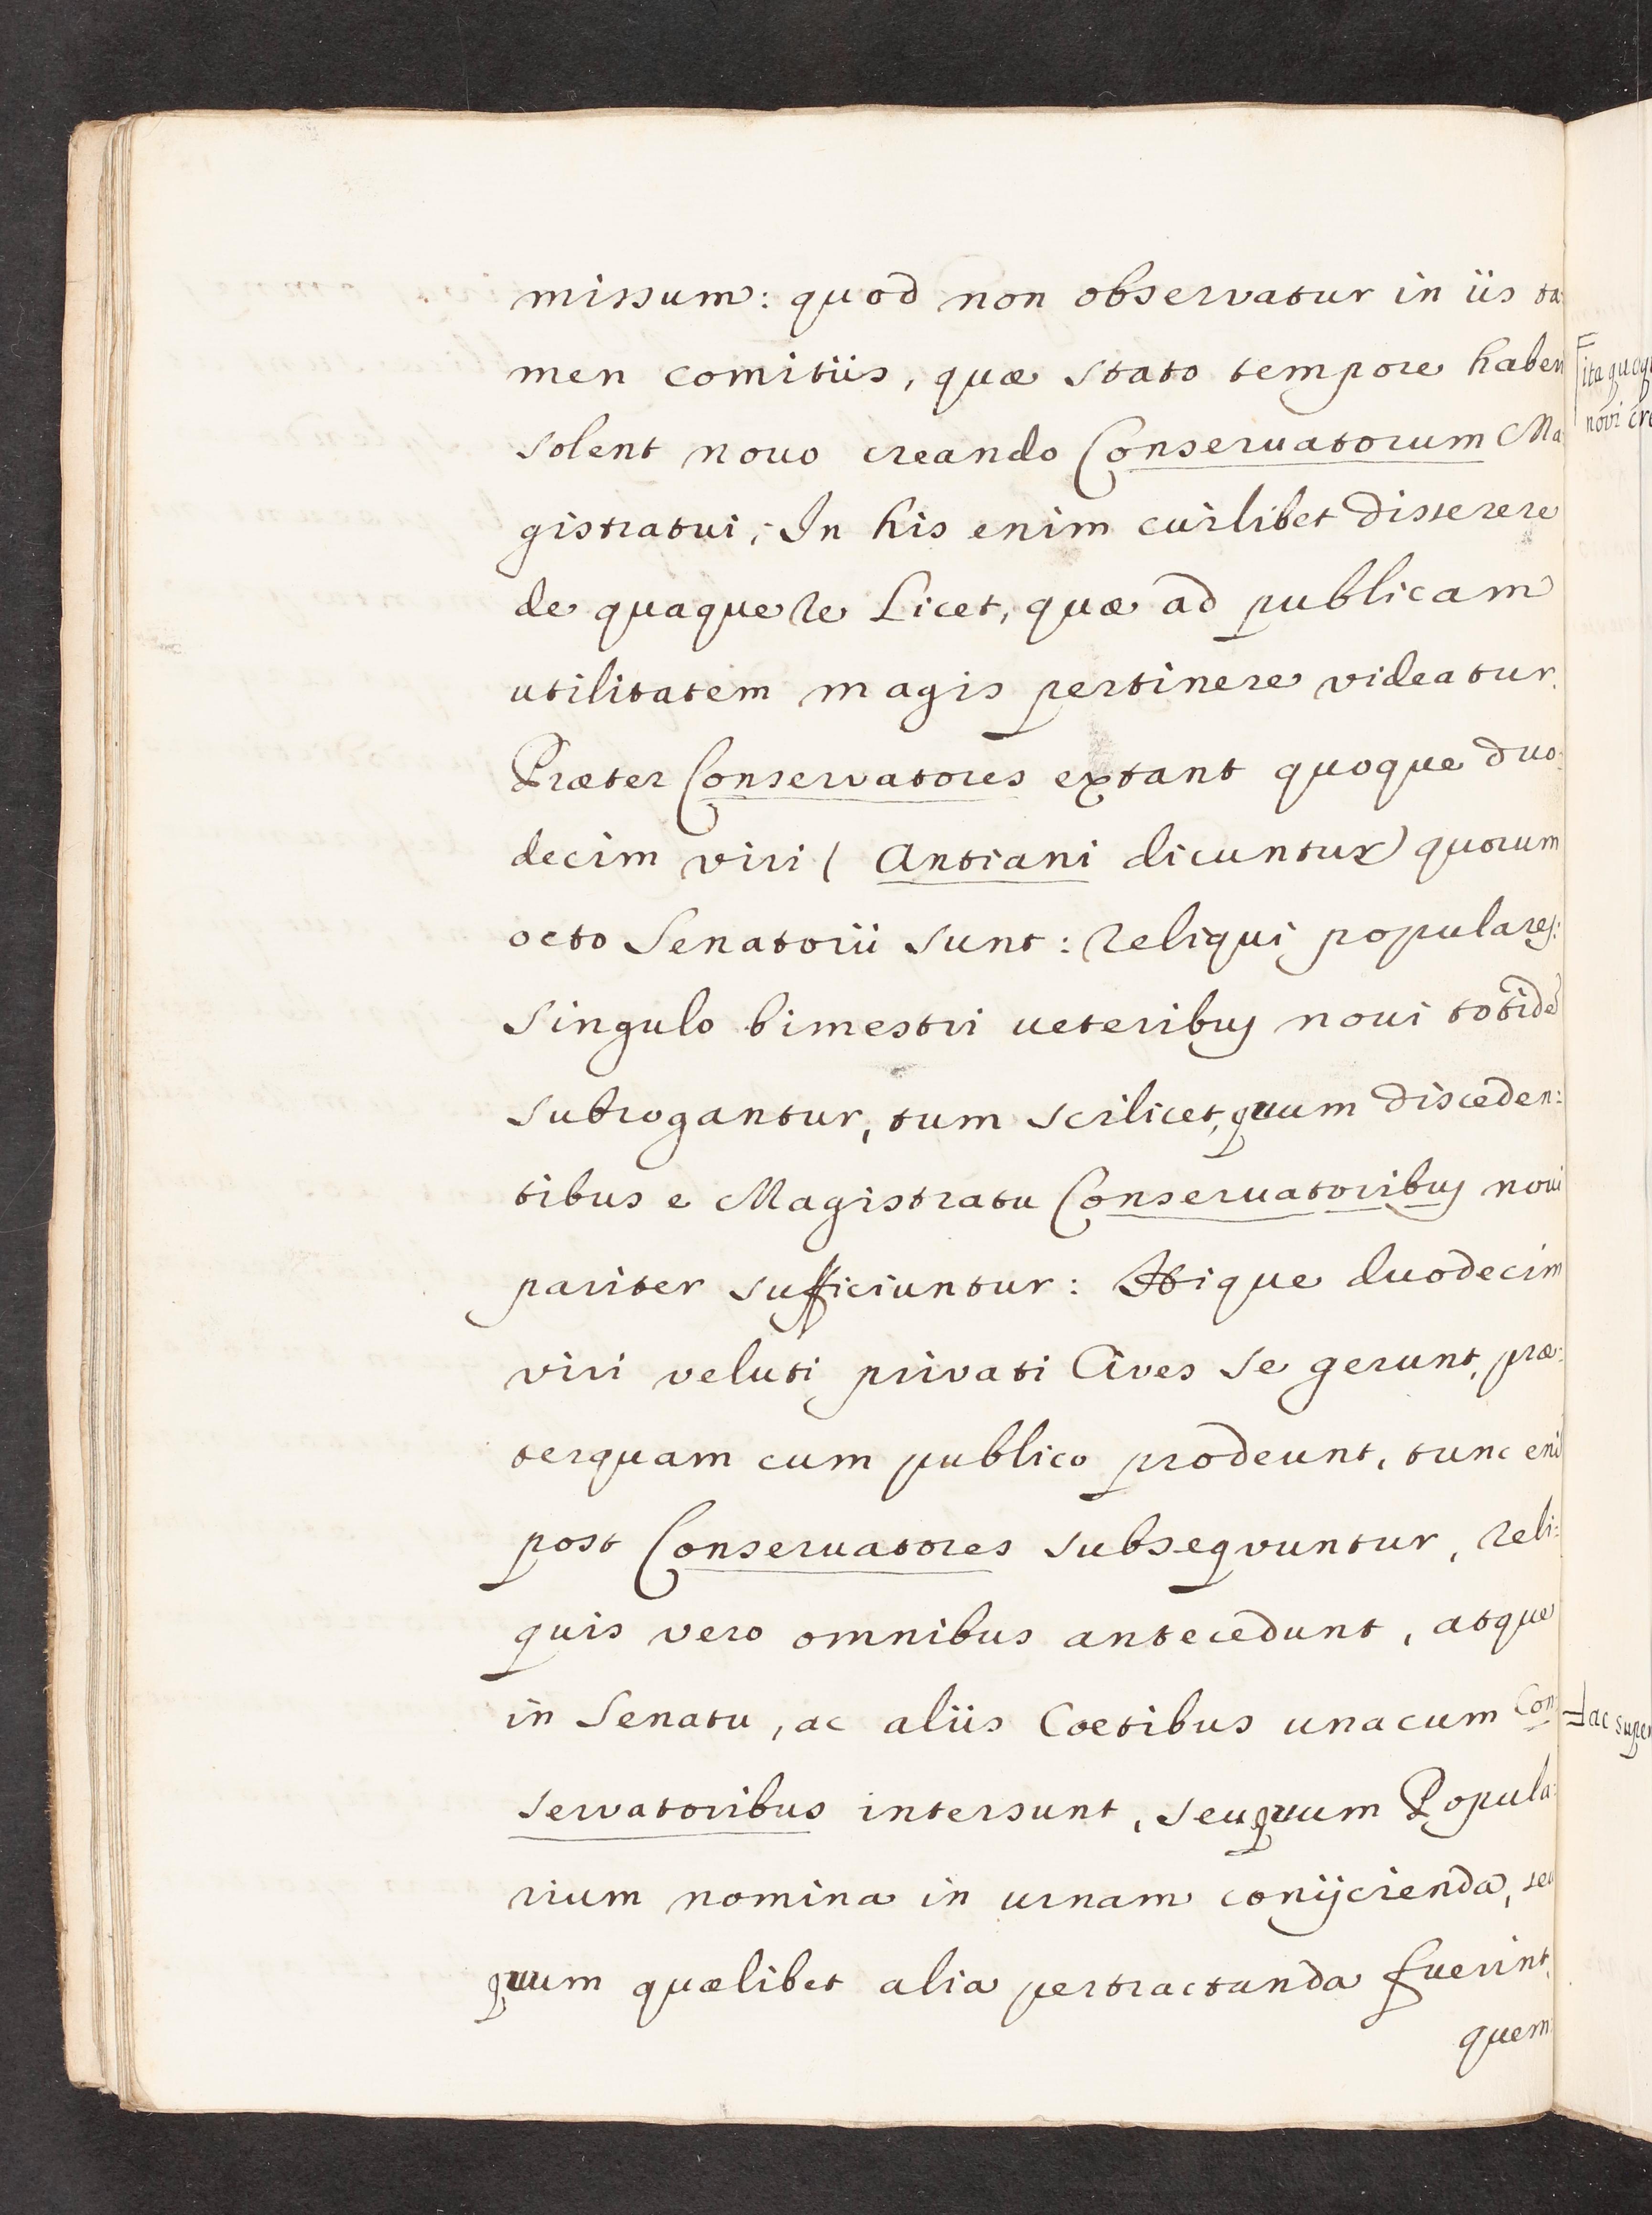 missum: quod non observatur in iis ta:
men comitiis, quæ stato tempore haberi
solent nouo creando Conseruatorum Ma:
gistratui; In his enim cuilibet disserere
de quaque re Licet, quæ ad publicam
utilitatem magis pertinere videatur.
Præter Conservatores extant quoque duo:
decim viri ( Antiani dicuntur) quorum
octo Senatorii sunt: reliqui populares:
Singulo bimestri ueteribus noui totidẽ
subrogantur, tum scilicet, quum disceden:
tibus e Magistratu Conseruatoribus noui
pariter sufficiuntur: Hique duodecim
viri veluti privati Cives se gerunt, præ:
terquam cum publico prodeunt, tunc enĩ
post Conseruatores subsequuntur, reli:
quis vero omnibus antecedunt, atque
in Senatu, ac aliis Coetibus unacum Con:
servatoribus intersunt, seu quum Popula:
rium nomina in urnam conijcienda, seu
quum quælibet alia pertractanda fuerint.
quem:
ita
novi
ac